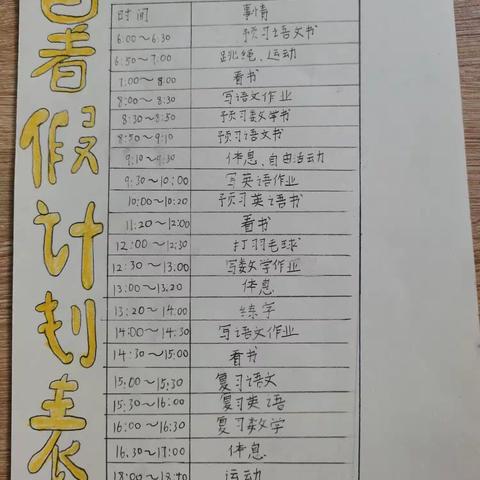 暑假计划表
时间 事情
6:00～6:30 预习语文书
6:50～7:00 跳绳、运动
7:00～8:00 看书
8:00～8:30 写语文作业
8:30～8:50 预习数学书
8:50～9:10 预习语文书
9:10～9:30 体息、自由活动
9:30～10:00 写英语作业
10:00～10:20 预习英语书
11:20～12:00 看书
12:00～12:30 打羽毛球
12:30～13:00 写数学作业
13:00～13:20 体息
13:20～14:00 练字
14:00～14:30 写语文作业
14:30～15:00 看书
15:00～15:30 复习语文
15:30～16:00 复习英语
16:00～16:30 复习数学
16:30～17:00 体息
18:00～18:40 运动